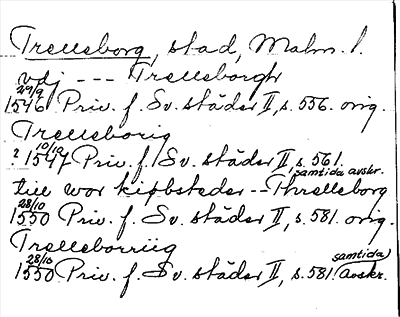 Trelleborg, stad, Malm. l.
vdj --- Trelleborgh
29/9 1546 Priv. f. Sv. städer II, s. 556. orig.
Trelleborig
? 10/10 1547 Priv. f. Sv. städer II, s. 561. samtida avskr.
till wor kipbsteder -- Threlleborg
28/10 1550 Priv. f. Sv. städer II, s. 581. orig.
Trelleborriig
28/10 1550 Priv. f. Sv. städer II, s. 581. (samtida) avskr.